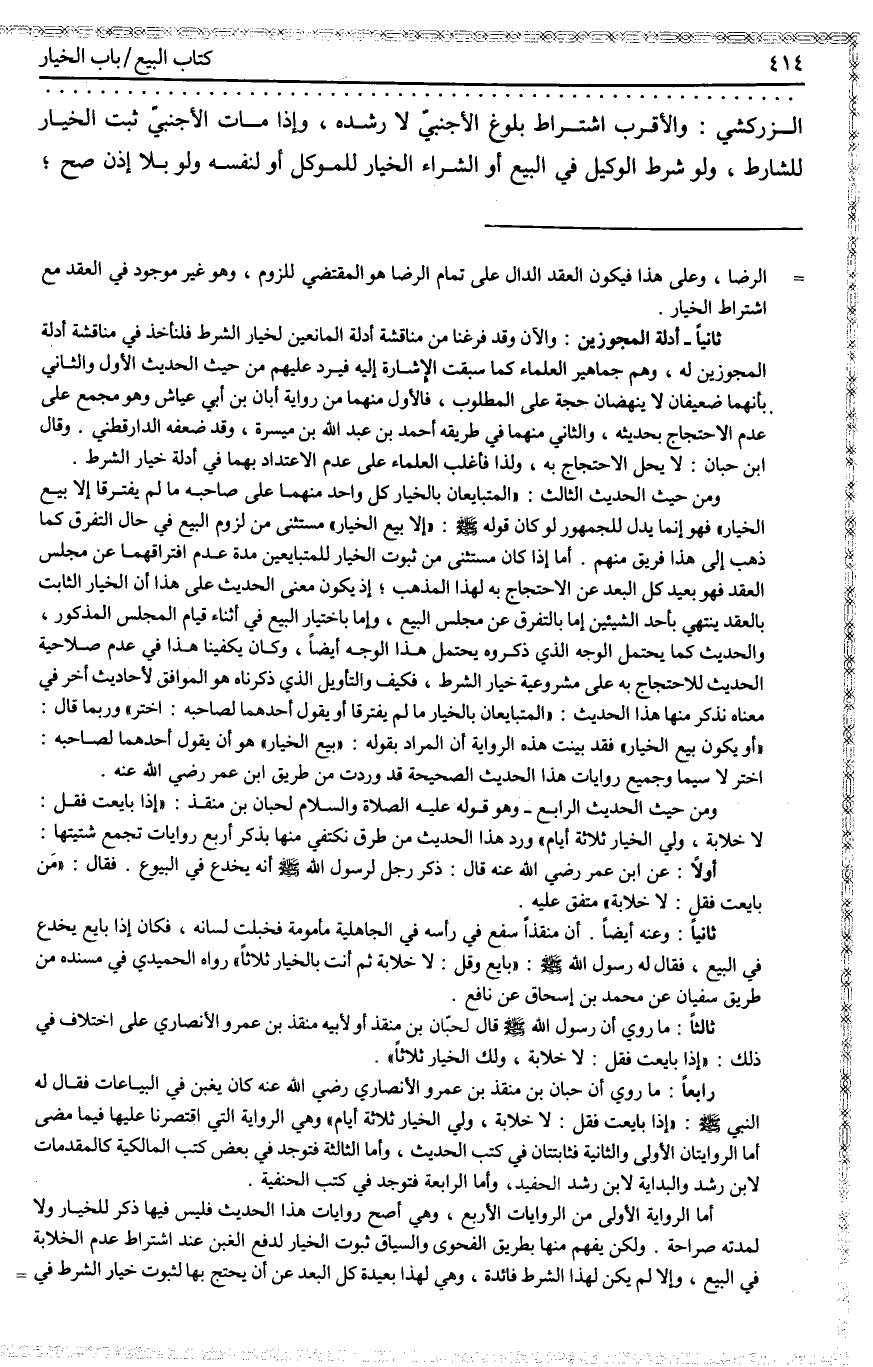 ٤١٤
كتاب البيع / باب الخيار
الـزركشي : والأقـرب اشتـراط بلوغ الأجنبيّ لا رشـده ، وإذا مـات الأجنبيّ ثبت الخيـار
للشارط ، ولو شرط الوكيل في البيع أو الشراء الخيار للموكل أو لنفسه ولو بـلا إذن صح ؛
= الرضا ، وعلى هذا فيكون العقد الدال على تمام الرضا هو المقتضي للزوم ، وهو غير موجود في العقد مع
اشتراط الخيار .
ثانياً ـ أدلة المجوزين : والآن وقد فرغنا من مناقشة أدلة المانعين لخيار الشرط فلنأخذ في مناقشة أدلة
المجوزين له ، وهم جماهير العلماء كما سبقت الإشارة إليه فيرد عليهم من حيث الحديث الأول والثاني
بأنهما ضعيفان لا ينهضان حجة على المطلوب ، فالأول منهما من رواية أبان بن أبي عياش وهو مجمع على
عدم الاحتجاج بحديثه ، والثاني منهما في طريقه أحمد بن عبد الله بن ميسرة ، وقد ضعفه الدارقطني . وقال
ابن حبان : لا يحل الاحتجاج به ، ولذا فأغلب العلماء على عدم الاعتداد بهما في أدلة خيار الشرط .
ومن حيث الحديث الثالث : «المتبايعان بالخيار كل واحد منهمـا على صاحبـه ما لم يفتـرقا إلا بيـع
الخيار» فهو إنما يدل للجمهور لو كان قوله ﷺ : «إلا بيع الخيار» مستثنى من لزوم البيع في حال التفرق كما
ذهب إلى هذا فريق منهم . أما إذا كان مستثنى من ثبوت الخيار للمتبايعين مدة عـدم افتراقهمـا عن مجلس
العقد فهو بعيد كل البعد عن الاحتجاج به لهذا المذهب ؛ إذ يكون معنى الحديث على هذا أن الخيار الثابت
بالعقد ينتهي بأحد الشيئين إما بالتفرق عن مجلس البيع ، وإما باختيار البيع في أثناء قيام المجلس المذكور ،
والحديث كما يحتمل الوجه الذي ذكـروه يحتمل هـذا الوجـه أيضاً ، وكـان يكفينا هـذا في عدم صـلاحية
الحديث للاحتجاج به على مشروعية خيار الشرط ، فكيف والتأويل الذي ذكرناه هو الموافق لأحاديث أخر في
معناه نذكر منها هذا الحديث : «المتبايعان بالخيار ما لم يفترقا أو يقول أحدهما لصاحبه : اختر» وربما قال :
«أو يكون بيع الخيار» فقد بينت هذه الرواية أن المراد بقوله : «بيع الخيار» هو أن يقول أحدهما لصـاحبه :
اختر لا سيما وجميع روايات هذا الحديث الصحيحة قد وردت من طريق ابن عمر رضي الله عنه .
ومن حيث الحديث الرابـع ـ وهو قـوله عليـه الصلاة والسـلام لحبان بن منقـذ : «إذا بايعت فقـل :
لا خلابة ، ولي الخيار ثلاثة أيام» ورد هذا الحديث من طرق نكتفي منها بذكر أربع روايات تجمع شتيتها :
أولاً : عن ابن عمر رضي الله عنه قال : ذكر رجل لرسول الله ﷺ أنه يخدع في البيوع . فقال : «مَن
بايعت فقل : لا خلابة» متفق عليه .
ثانياً : وعنه أيضاً . أن منقذاً سفع في رأسه في الجاهلية مأمومة فخبلت لسانه ، فكان إذا بايع يخدع
في البيع ، فقال له رسول الله ﷺ : «بايع وقل : لا خلابة ثم أنت بالخيار ثلاثاً» رواه الحميدي في مسنده من
طريق سفيان عن محمد بن إسحاق عن نافع .
ثالثاً : ما روي أن رسول الله ﷺ قال لحبّان بن منقذ أو لأبيه منقذ بن عمرو الأنصاري على اختلاف في
ذلك : «إذا بايعت فقل : لا خلابة ، ولك الخيار ثلاثاً» .
رابعاً : ما روي أن حبان بن منقذ بن عمرو الأنصاري رضي الله عنه كان يغبن في البيـاعات فقـال له
النبي ﷺ : «إذا بايعت فقل : لا خلابة ، ولي الخيار ثلاثة أيام» وهي الرواية التي اقتصرنا عليها فيما مضى
أما الروايتان الأولى والثانية فثابتتان في كتب الحديث ، وأما الثالثة فتوجد في بعض كتب المالكية كالمقدمات
لابن رشد والبداية لابن رشد الحفيد، وأما الرابعة فتوجد في كتب الحنفية .
أما الرواية الأولى من الروايات الأربع ، وهي أصح روايات هذا الحديث فليس فيها ذكر للخيـار ولا
لمدته صراحة . ولكن يفهم منها بطريق الفحوى والسياق ثبوت الخيار لدفع الغبن عند اشتراط عدم الخلابة
في البيع ، وإلا لم يكن لهذا الشرط فائدة ، وهي لهذا بعيدة كل البعد عن أن يحتج بها لثبوت خيار الشرط في =